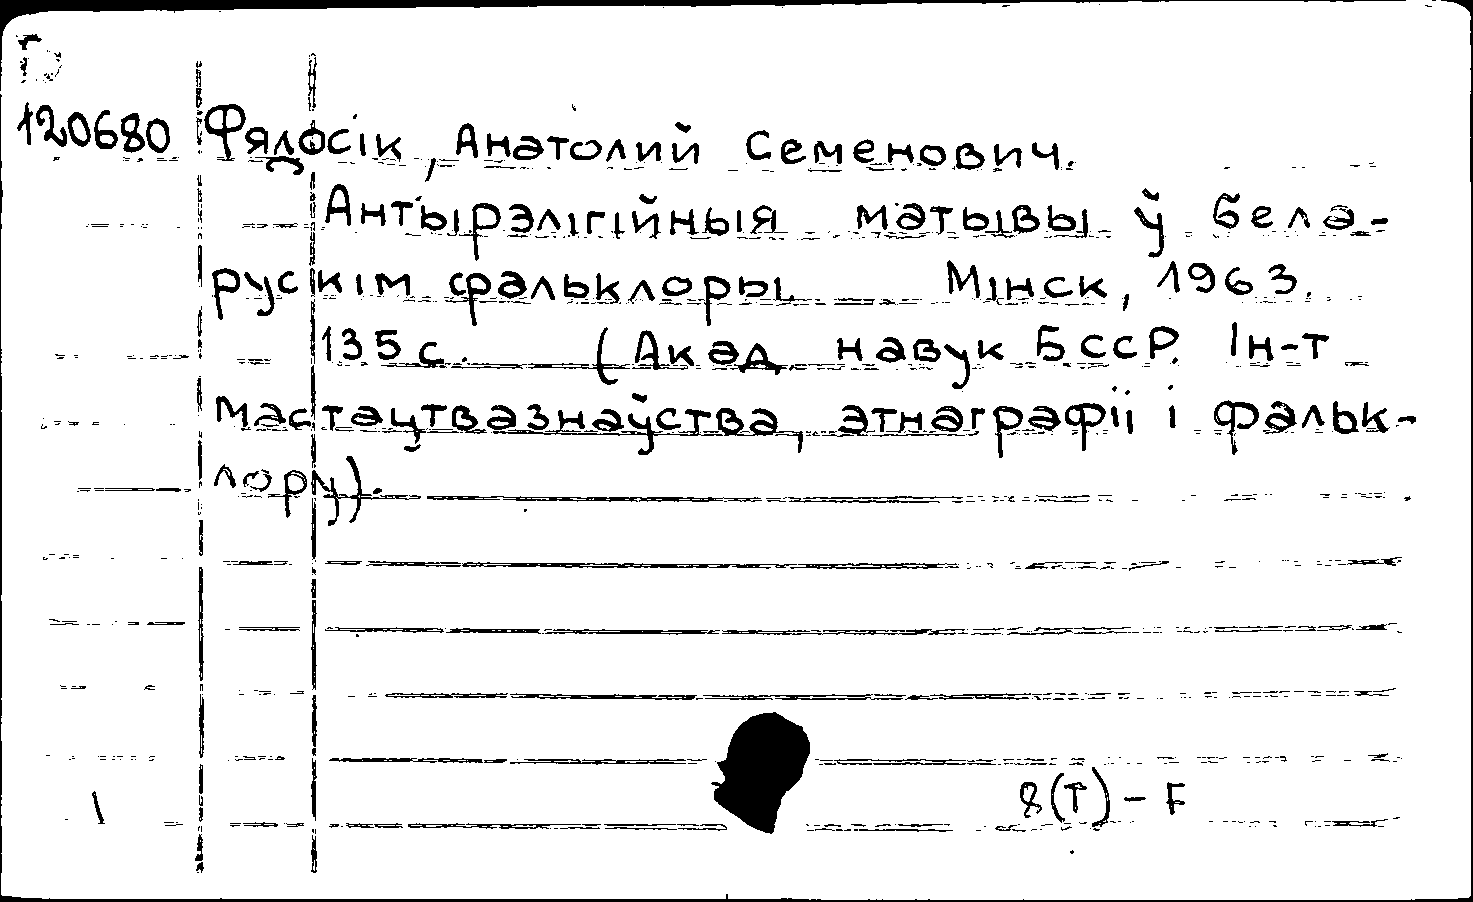 Б
120680 Фядосік, Анатолий Семенович.
Антырэлігійныя матывы ў бела-
рускім фальклоры. Мінск, 1963.
135 с. (Акад. навук БССР. Ін-т
мастацтвазнаўства, этнаграфіі і фальк-
лору).
8(Т) - F